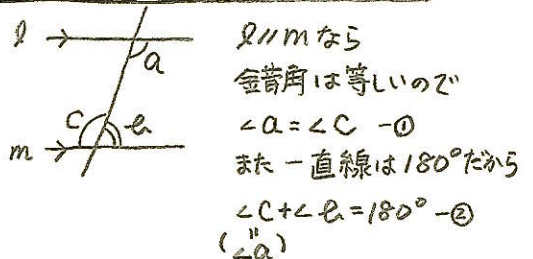 l
a
c
b
m
l // m なら
錯角は等しいので
∠a = ∠c -①
また 一直線は180°だから
∠c + ∠b = 180° -②
(∠a)